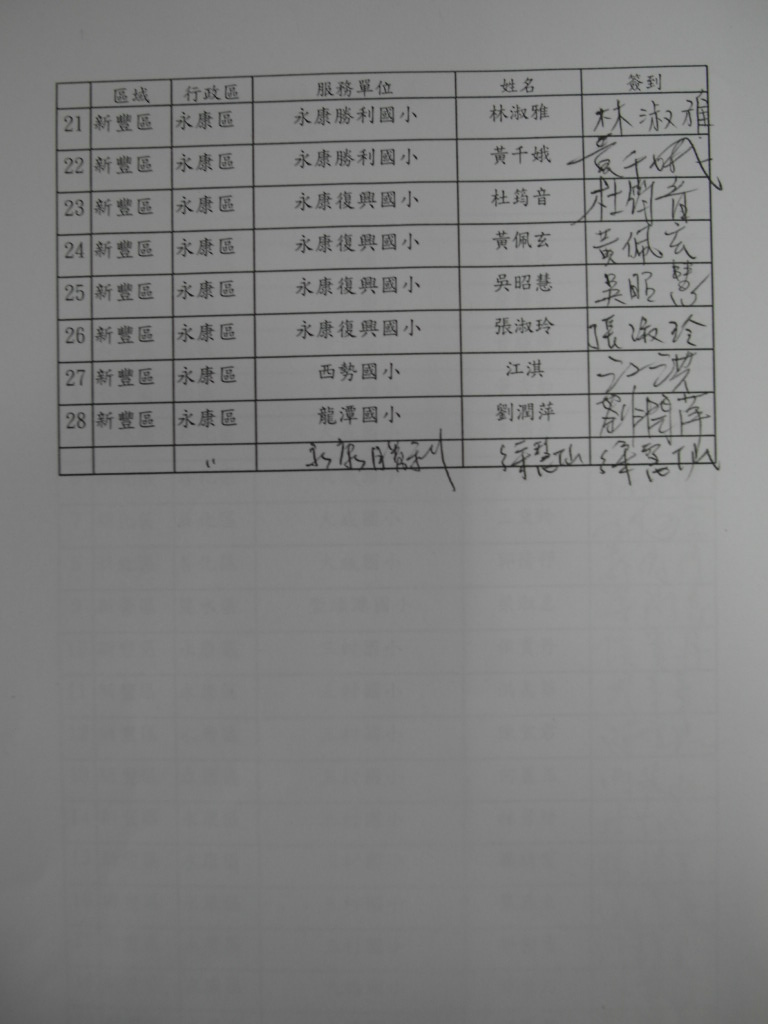 區域 行政區 服務單位 姓名 簽到
21 新豐區 永康區 永康勝利國小 林淑雅 林淑雅
22 新豐區 永康區 永康勝利國小 黃千娥 黃千娥
23 新豐區 永康區 永康復興國小 杜筠音 杜筠音
24 新豐區 永康區 永康復興國小 黃佩玄 黃佩玄
25 新豐區 永康區 永康復興國小 吳昭慧 吳昭慧
26 新豐區 永康區 永康復興國小 張淑玲 張淑玲
27 新豐區 永康區 西勢國小 江淇 江淇
28 新豐區 永康區 龍潭國小 劉潤萍 劉潤萍
〃 永康勝利 徐慧仙 徐慧仙